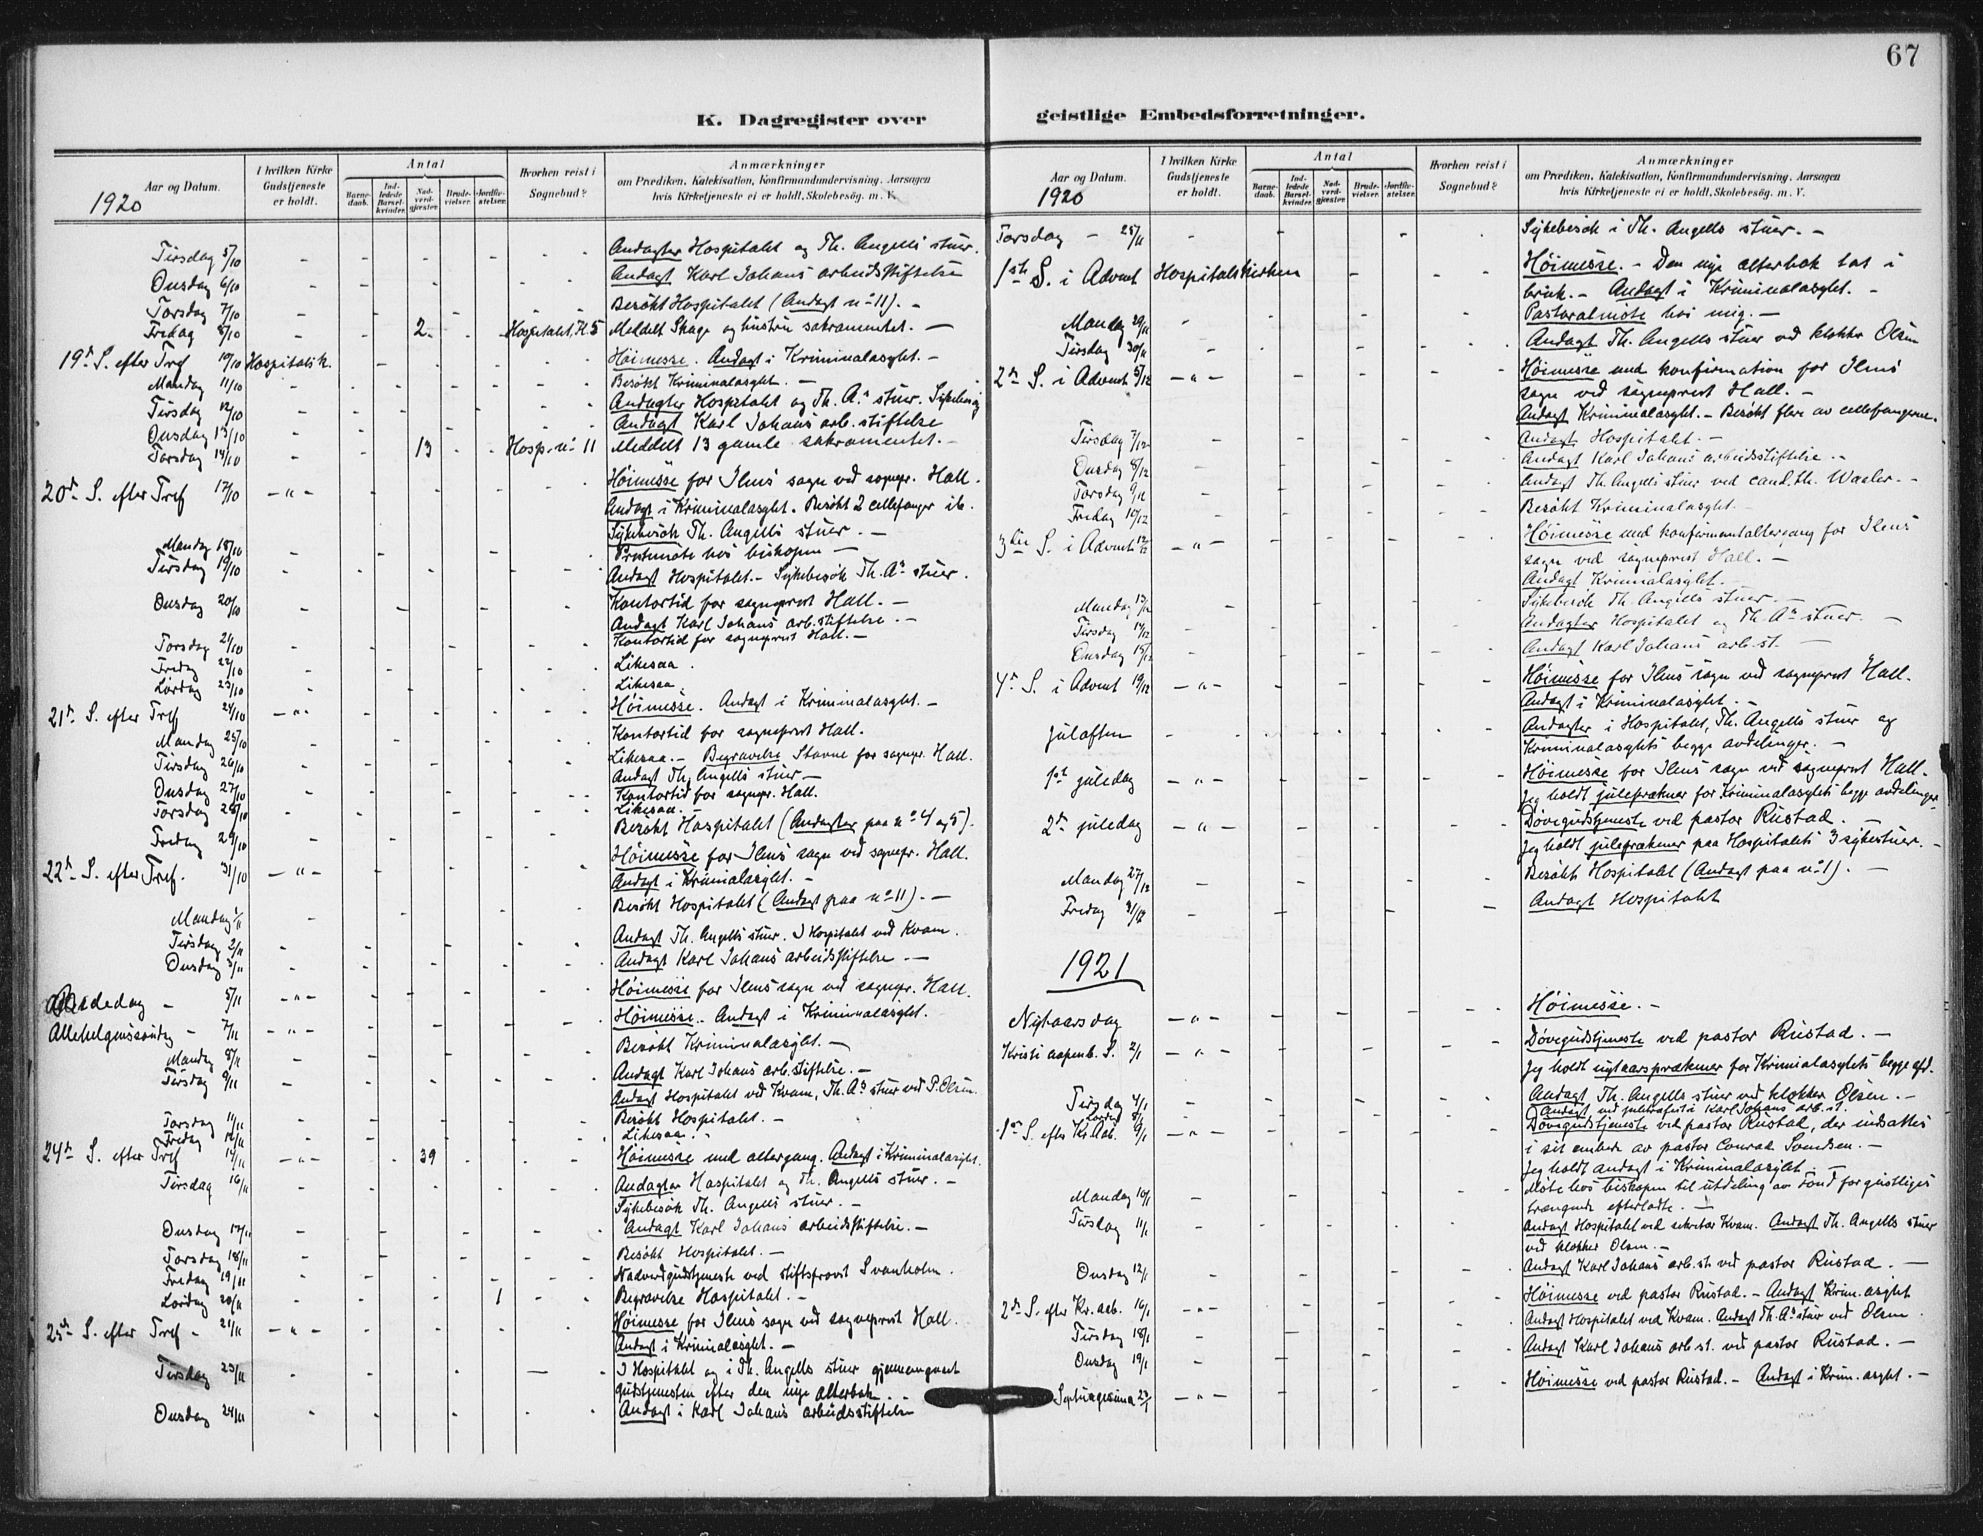 67
K. Dagregister over geistlige Embedsforretninger.
Aar og Datum. 1920
I hvilken Kirke Gudstjeneste er holdt.
Antal
Barnedaab.
Indledede Barselkvinder.
Nadverdgjæster.
Brudevielser.
Jordfæstelser.
Hvorhen reist i Sognebud?
Anmærkninger
om Prædiken, Katekisation, Konfirmandundervisning, Aarsagen
hvis Kirketjeneste ei er holdt, Skolebesøg. m. V.
Tirsdag 5/10 - - - - - - - Andagter Hospitalet og Th. Angells stuer.
Onsdag 6/10 - - - - - - - Andagt Karl Johans arbeidsstiftelse
Torsdag 7/10 - - - - - - - Besøkt Hospitalet (Andagt no 11). -
Fredag 8/10 - - - 2 - - Hospitalet, No 5 Meddelt Skage og hustru sakramentet. -
19de S. efter Tref 10/10 Hospitalsk. - - - - - - Høimesse. Andagt i Kriminalasylet. -
Mandag 11/10 - - - - - - - Besøkt Kriminalasylet. -
Tirsdag 12/10 - - - - - - - Andagter Hospitalet og Th. A.s stuer.
Onsdag 13/10 - - - - - - - Andagt Karl Johans arb. stiftelse
Torsdag 14/10 - - - 13 - - Hosp. no 11 Meddelt 13 gamle sakramentet. -
20de S. efter Tref 17/10 - " - Høimesse for Ilens sogn ved sognepr. Hall.
Andagt i Kriminalasylet. Besøkt 2 cellefanger ib.
Sykebesøk Th. Angells stuer. -
Mandag 18/10 Prstemøte hos biskopen -
Tirsdag 19/10 Andagt Hospitalet. - Sykebesøk Th. A.s stuer.
Onsdag 20/10 Kontortid for sogneprest Hall. -
Andagt Karl Johans arb. stiftelse. -
Torsdag 21/10 Kontortid for sogneprest Hall. -
Fredag 22/10 Likesaa.
Lørdag 23/10 Likesaa
21de S. efter Tref 24/10 - " - Høimesse. Andagt i Kriminalasylet. -
Mandag 25/10 Kontortid for sogneprest Hall.
Tirsdag 26/10 Likesaa. - Begravelse Stavne for sognepr. Hall.
Andagt Th. Angells stuer -
Onsdag 27/10 Kontortid for sognepr. Hall.
Torsdag 28/10 Likesaa.
Fredag 29/10 Besøkt Hospitalet (Andagter paa no 4 og 5).
22de S. efter Tref. 31/10 - " - Høimesse for Ilens sogn ved sognepr. Hall.
Andagt i Kriminalasylet. -
Mandag 1/11 Besøkt Hospitalet (Andagt paa no 11). -
Tirsdag 2/11 Andagt Th. Angells stuer. I Hospitalet ved Kvam.
Onsdag 3/11 Andagt Karl Johans arbeidsstiftelse -
Bededag - 5/11 - " - Høimesse for Ilens sogn ved sognepr. Hall.
Allehelgenssøndag - 7/11 - " - Høimesse. Andagt i Kriminalasylet.
Mandag 8/11 Besøkt Kriminalasylet. -
Tirsdag 9/11 Andagt Karl Johans arb. stiftelse. -
Andagt Hospitalet ved Kvam, Th. A.s stuer ved P. Olsen
Torsdag 11/11 Besøkt Hospitalet. -
Fredag 12/11 Likesaa. -
24de S. efter Tref 14/11 - " - 39 Høimesse med altergang. Andagt i Kriminalasylet.
Tirsdag 16/11 Andagter Hospitalet og Th. Angells stuer. -
Sykebesøk Th. Angells stuer. -
Onsdag 17/11 Andagt Karl Johans arbeidsstiftelse. -
Torsdag 18/11 Besøkt Hospitalet. -
Fredag 19/11 Nadverdgudstjeneste ved stiftsprovst Svanholm.
Lørdag 20/11 1 Begravelse Hospitalet. -
25de S. efter Tref - 21/11 - " - Høimesse for Ilens sogn ved sogneprest Hall.
Andagt i Kriminalasylet. -
Tirsdag 23/11 I Hospitalet og i Th. Angells stuer gjennemgaaet
gudstjenesten efter den nye alterbok. -
Onsdag 24/11 Andagt i Karl Johans arbeidsstiftelse
Aar og Datum. 1920
I hvilken Kirke Gudstjeneste er holdt.
Antal
Barnedaab.
Indledede Barselkvinder.
Nadverdgjæster.
Brudevielser.
Jordfæstelser.
Hvorhen reist i Sognebud?
Anmærkninger
om Prædiken, Katekisation, Konfirmandundervisning, Aarsagen
hvis Kirketjeneste ei er holdt, Skolebesøg. m. V.
Torsdag - 25/11 Sykebesøk i Th. Angells stuer. -
1ste S. i Advent Hospitalskirken Høimesse. - Den nye alterbok tat i
bruk. - Andagt i Kriminalasylet. -
Mandag 29/11 Pastoralmøte hos mig. -
Tirsdag 30/11 Andagt Th. Angells stuer ved klokker Olsen
2den S. i Advent 5/12 - " - Høimesse med konfirmation for Ilens
sogn ved sogneprest Hall. -
Andagt Kriminalasylet. - Besøkt flere av cellefangerne.
Tirsdag 7/12 Andagt Hospitalet. -
Onsdag 8/12 Andagt Karl Johans arbeidsstiftelse. -
Torsdag 9/12 Andagt Th. Angells stuer ved cand. th. Waaler. -
Fredag 10/12 Besøkt Kriminalasylet. -
3die S. i Advent 12/12 - " - Høimesse med konfirmantaltergang for Ilens
sogn ved sogneprest Hall. -
Andagt Kriminalasylet. -
Mandag 13/12 Sykebesøk Th. Angells stuer. -
Tirsdag 14/12 Andagter Hospitalet og Th. A.s stuer. -
Onsdag 15/12 Andagt Karl Johans arb. st. -
4de S. i Advent 19/12 - " - Høimesse for Ilens sogn ved sogneprest Hall.
Andagt i Kriminalasylet. -
Juleaften Andagter i Hospitalet, Th. Angells stuer og
Kriminalasylets begge avdelinger. -
1ste juledag - " - Høimesse for Ilens sogn ved sogneprest Hall.
Jeg holdt juleprækner for Kriminalasylets begge avdelinger.
2den juledag - " - Døvegudstjeneste ved pastor Rustad. -
Jeg holdt juleprækner paa Hospitalets 3 sykestuer. -
Mandag 27/12 Besøkt Hospitalet (Andagt paa no 1). -
Fredag 31/12 Andagt Hospitalet
1921
Nytaarsdag - " - Høimesse. -
Kristi aapenb. S. 2/1 - " - Døvegudstjeneste ved pastor Rustad. -
Jeg holdt nytaarsprækner for Kriminalasylets begge afd.
Tirsdag 4/1 Andagt Th. Angells stuer ved klokker Olsen. -
Lørdag 8/1 Andagt ved juletræfest i Karl Johans arb. st.
1ste S. efter Kr. Aab. 9/1 - " - Døvegudstjeneste ved pastor Rustad, der indsattes
i sit embede av pastor Conrad Svendsen. -
Jeg holdt andagt i Kriminalasylet -
Mandag 10/1 Møte hos biskopen til utdeling av fond for geistliges
trængende efterladte. -
Tirsdag 11/1 Andagt Hospitalet ved sekretær Kvam. Andagt Th. Angells stuer
ved klokker Olsen. -
Onsdag 12/1 Andagt Karl Johans arb. st. ved pastor Rustad. -
2den S. efter Kr. aab. 16/1 - " - Høimesse ved pastor Rustad. - Andagt Krim. asylet
Tirsdag 18/1 Andagt Hospitalet ved Kvam. Andagt Th. A.s stuer ved Olsen.
Onsdag 19/1 Andagt Karl Johans arb. st. ved pastor Rustad. -
Septuagesima 23/1 - " - Høimesse ved pastor Rustad. - Andagt i Krim. asylet. -